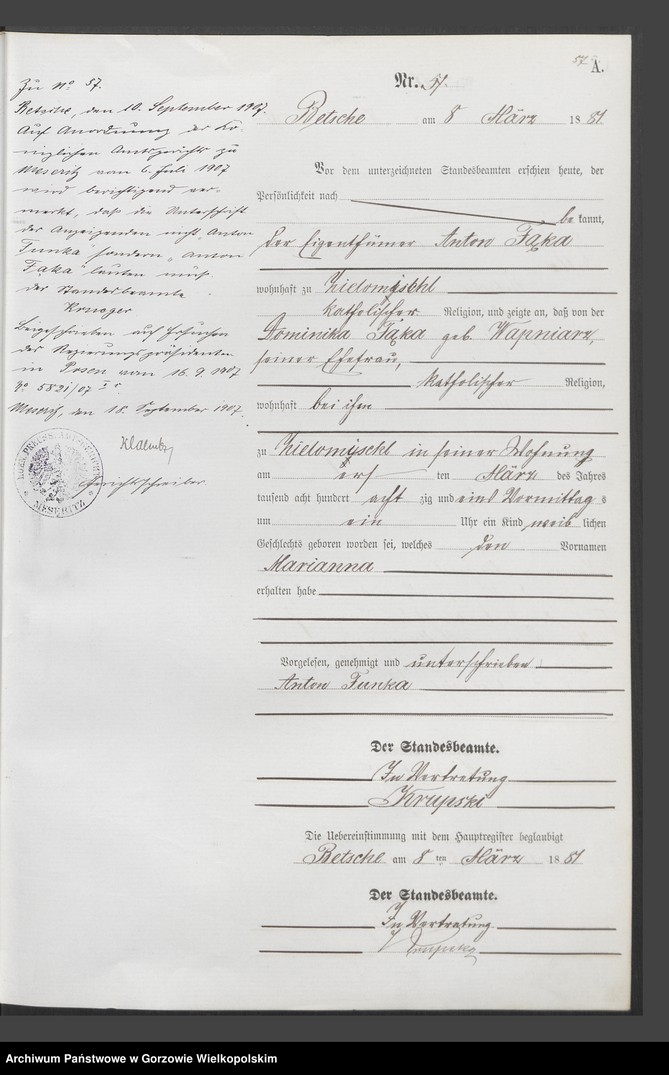 57
A.
Nr. 57.
Betsche am 8 März 1881
Vor dem unterzeichneten Standesbeamten erschien heute, der
Persönlichkeit nach
bekannt,
der Eigenthümer Anton Fąka
wohnhaft zu Zielomyschl
katholischer Religion, und zeigte an, daß von der
Dominika Fąka geb. Wapniarz,
seiner Ehefrau,
katholischer Religion,
wohnhaft bei ihm
zu Zielomyschl in seiner Wohnung
am ersten März des Jahres
tausend acht hundert achtzig und eins Vormittags
um ein Uhr ein Kind weiblichen
Geschlechts geboren worden sei, welches den Vornamen
Marianna
erhalten habe
Vorgelesen, genehmigt und unterschrieben
Anton Funka
Der Standesbeamte.
In Vertretung
Krupski
Die Uebereinstimmung mit dem Hauptregister beglaubigt
Betsche am 8ten März 1881
Der Standesbeamte.
In Vertretung
Krupski
Zu No 57.
Betsche, den 10. September 1907.
Auf Anordnung des Kö-
niglichen Amtsgerichts zu
Meseritz vom 6. Juli 1907
wird berichtigend ver-
merkt, daß die Unterschrift
des Anzeigenden nicht „Anton
Funka“ sondern „Anton
Fąka“ lauten muß.
Der Standesbeamte
Krueger
Beigeschrieben auf Ersuchen
des Regierungspräsidenten
in Posen vom 16. 9. 1907
No 5821/07 I
Meseritz, den 18. September 1907.
Gerichtsschreiber
MESERITZ
Archiwum Państwowe w Gorzowie Wielkopolskim